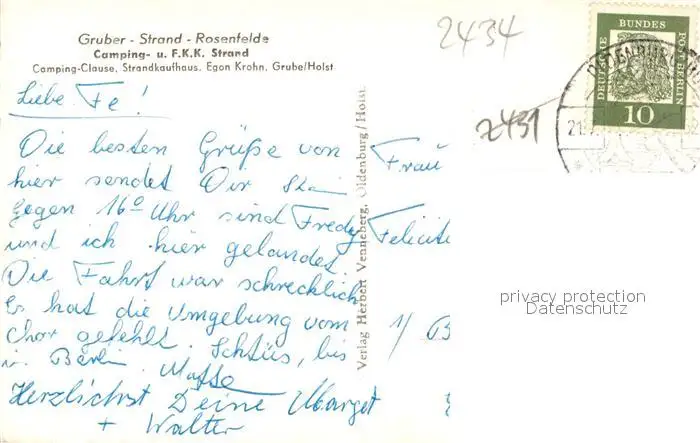 Gruber - Strand - Rosenfelde
Camping- u. F.K.K. Strand
Camping-Clause, Strandkaufhaus, Egon Krohn, Grube/Holst.
2434
Z431
DEUTSCHE BUNDES POST BERLIN
10
Liebe Fe!
Die besten Grüße von
hier sendet Dir
Gegen 16° Uhr sind Fredy
und ich hier gelandet.
Die Fahrt war schrecklich
Es hat die Umgebung vom
Chor gefehlt. Schüs, bis
in Berlin.
Herzlichst Deine Margot
+ Walter
Verlag Herbert Venneberg, Oldenburg/Holst.
Frau
Felicit
1/
privacy protection
Datenschutz